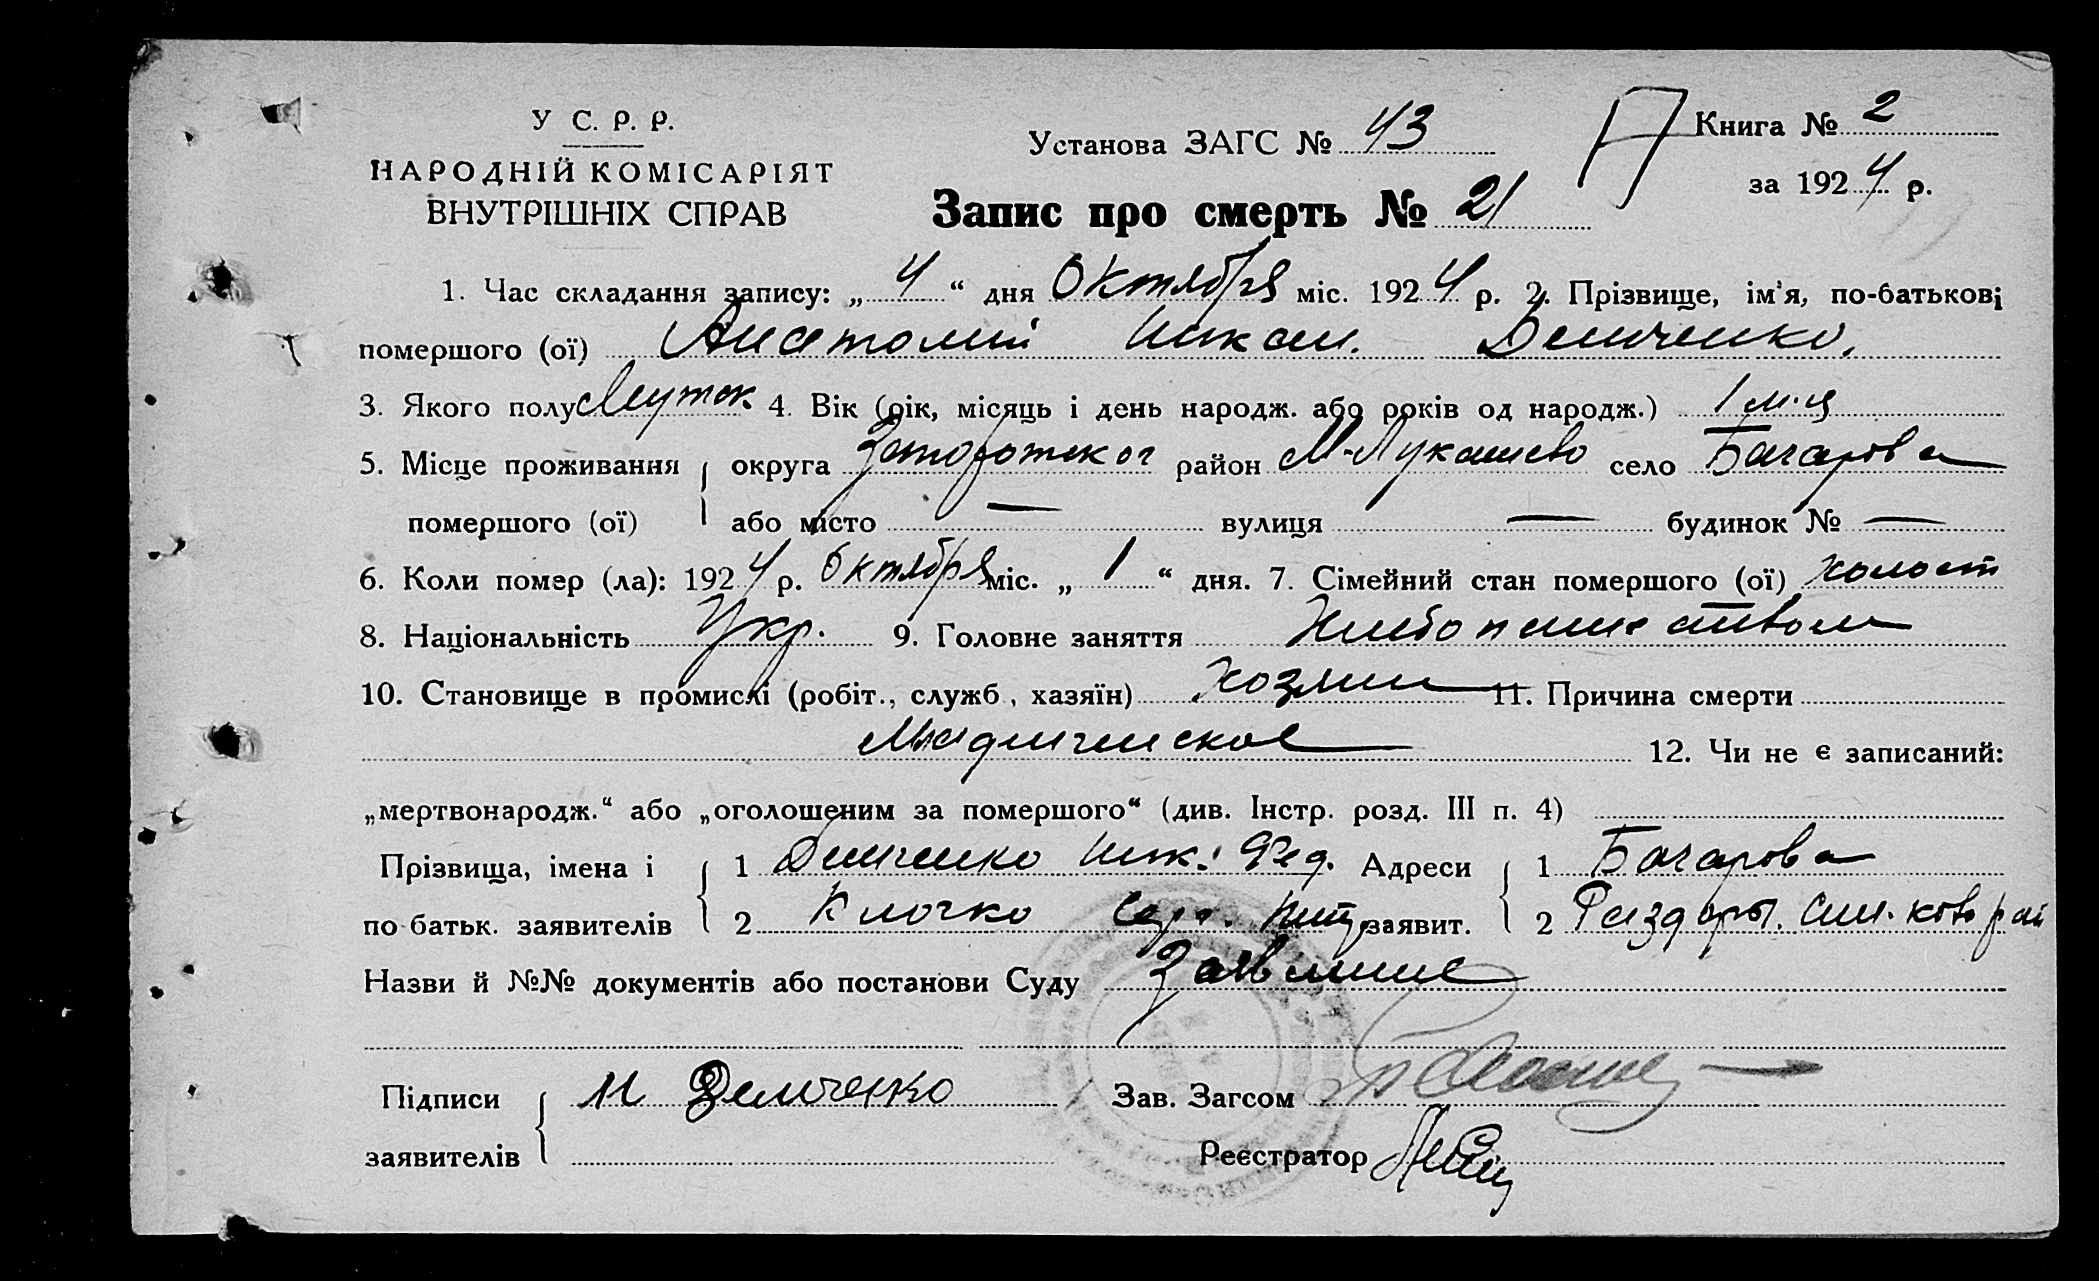 У С. Р. Р.
НАРОДНІЙ КОМІСАРІЯТ
ВНУТРІШНІХ СПРАВ
Установа ЗАГС № 43
Книга № 2
за 1924 р.
Запис про смерть № 21
1. Час складання запису: „ 4 “ дня Октября міс. 1924 р. 2. Прізвище, ім'я, по-батькові
помершого (ої) Анатолий Никол. Демченко,
3. Якого полу 4. Вік (рік, місяць і день народж. або років од народж.) 1 м-ц
5. Місце проживання округа район М-Лукашево село Бочарова
помершого (ої) або місто — вулиця — будинок № —
6. Коли помер (ла): 1924 р. Октября міс. „ 1 “ дня. 7. Сімейний стан помершого (ої) холост
8. Національність Укр. 9. Головне заняття
10. Становище в промислі (робіт., служб, хазяїн) хозяин 11. Причина смерти
Младенческое 12. Чи не є записаний:
„мертвонародж.“ або „оголошеним за помершого“ (див. Інстр. розд. III п. 4)
Прізвища, імена і 1 Демченко Ник. Фед. Адреси 1 Бочарова
по батьк. заявителів 2 Клочко заявит. 2 Раздоры.
Назви й №№ документів або постанови Суду Заявление
Підписи Н Демченко Зав. Загсом
заявителів Реєстратор